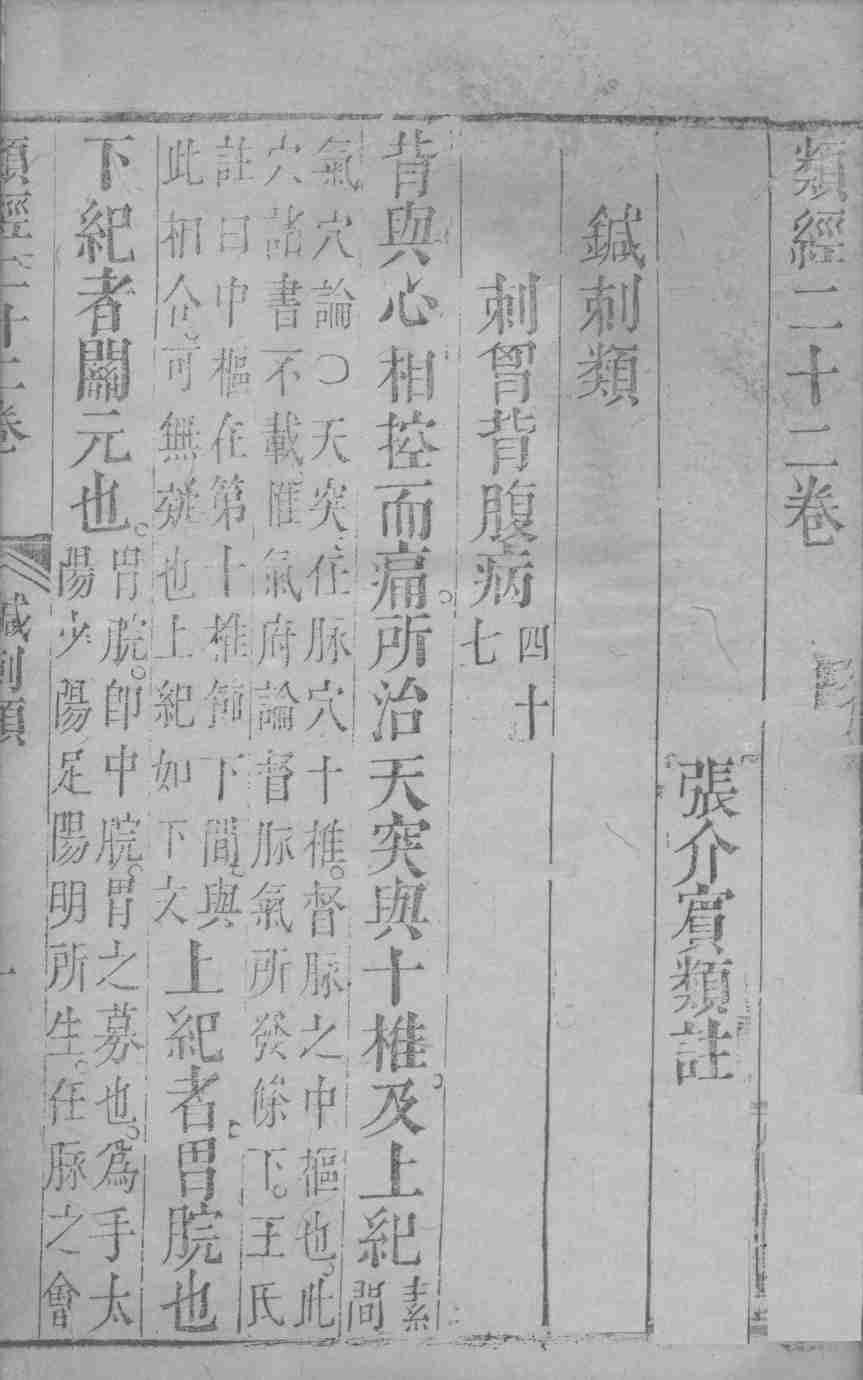 類經二十二卷
張介賔類註
鍼刺類
刺胷背腹病四十七
背與心相控而痛。所治天突與十椎。及上紀素問
氣穴論○天突任脉穴十椎。督脉之中樞也。此
穴諸書不載。惟氣府論督脉氣所發條下。王氏
註曰中樞在第十椎節下間。與
此相合。可無疑也上紀如下文
上紀者。胃脘也
下紀者關元也。
胃脘。卽中脘。胃之募也。爲手太
陽少陽足陽明所生。任脉之會
類經二十二卷 鍼刺類 一